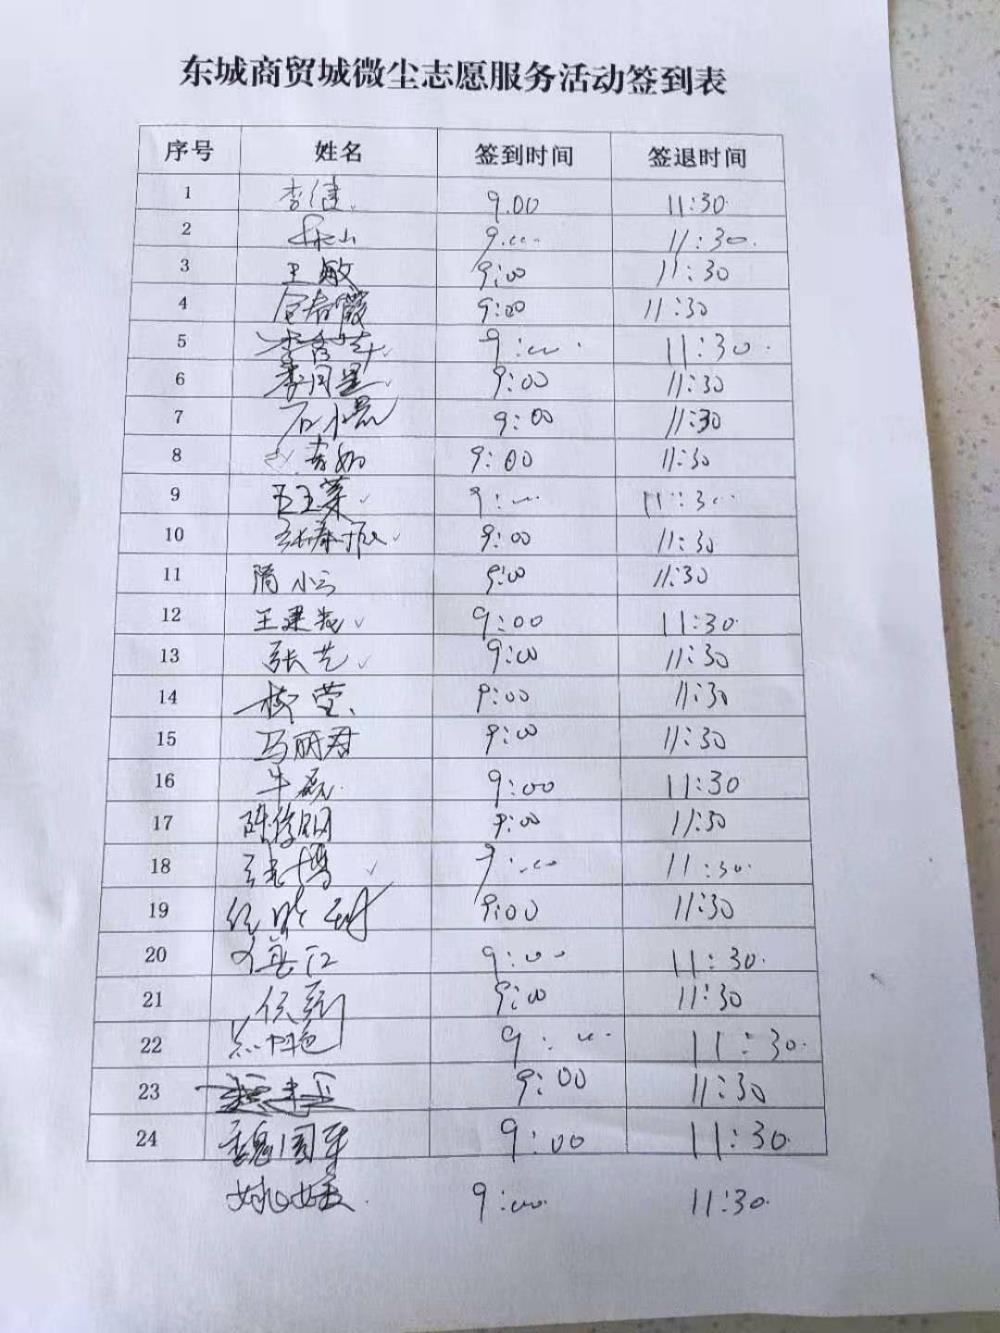 东城商贸城微尘志愿服务活动签到表
序号 姓名 签到时间 签退时间
1 李健 9.00 11:30
2 9:00 11:30
3 王敏 9:00 11:30
4 9:00 11:30
5 9:00 11:30
6 9:00 11:30
7 石小磊 9:00 11:30
8 9:00 11:30
9 9:00 11:30
10 9:00 11:30
11 隋小云 9:00 11:30
12 9:00 11:30
13 张艺 9:00 11:30
14 柳莹 9:00 11:30
15 马丽君 9:00 11:30
16 牛磊 9:00 11:30
17 9:00 11:30
18 9:00 11:30
19 9:00 11:30
20 9:00 11:30
21 9:00 11:30
22 9:00 11:30
23 9:00 11:30
24 魏国军 9:00 11:30
姚媛 9:00 11:30